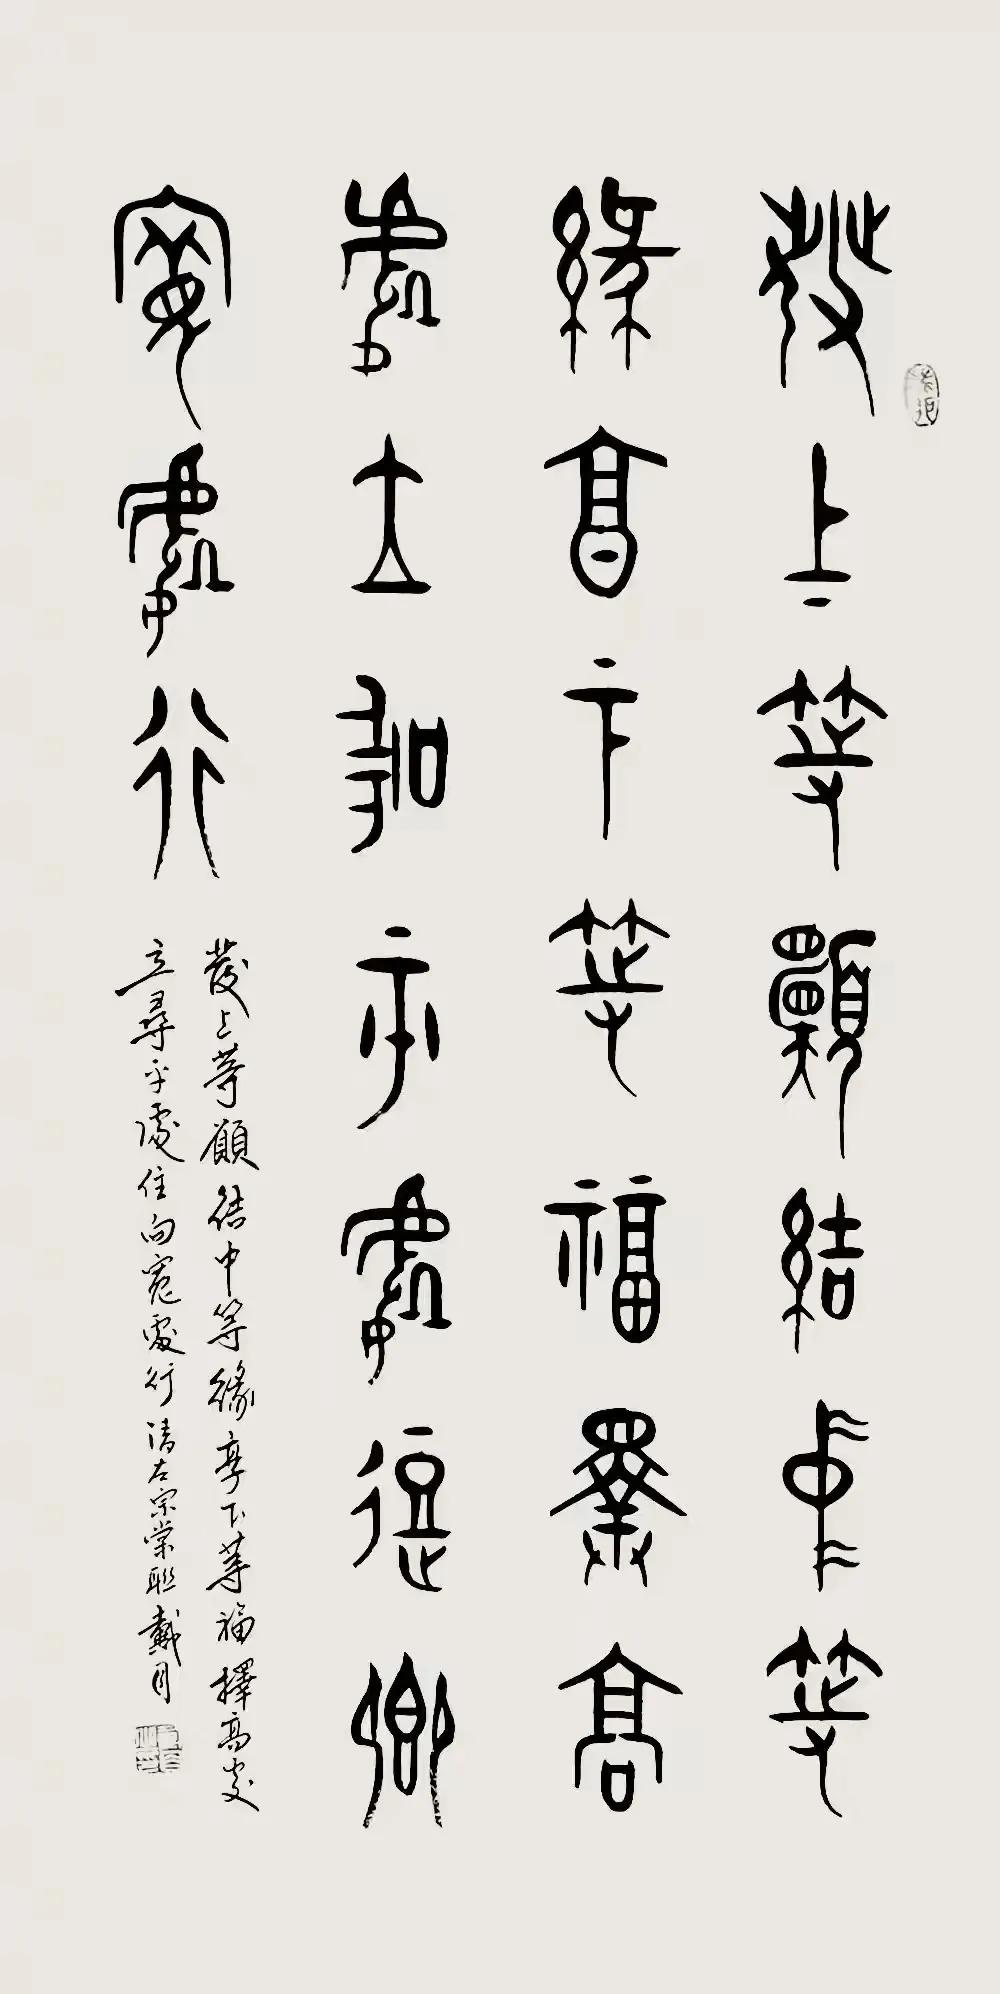 發上等願結中等
緣享下等福擇高
處立尋平處住向
寬處行
發上等願結中等緣享下等福擇高處
立尋平處住向寬處行清左宗棠聯戴月